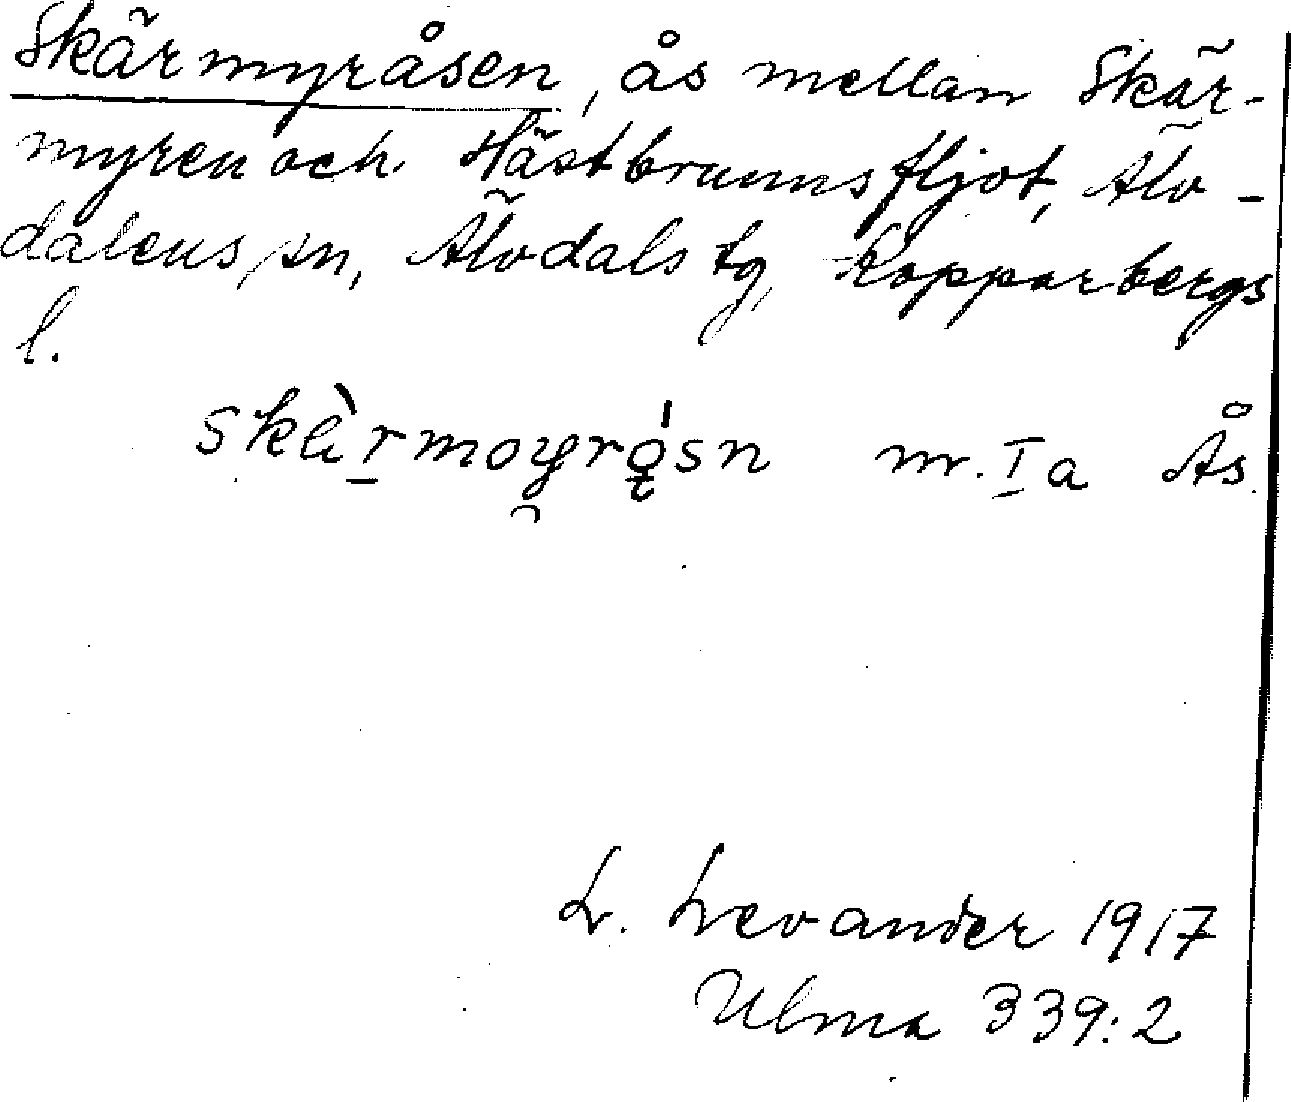 Skärmyråsen, ås mellan Skär-
myren och Hästbrunnsfljot, Älv-
dalens sn, Älvdals tg, Kopparbergs
l.
skèrmoyrǫ́sn m. I a Ås.
L. Levander 1917
Ulma 339:2